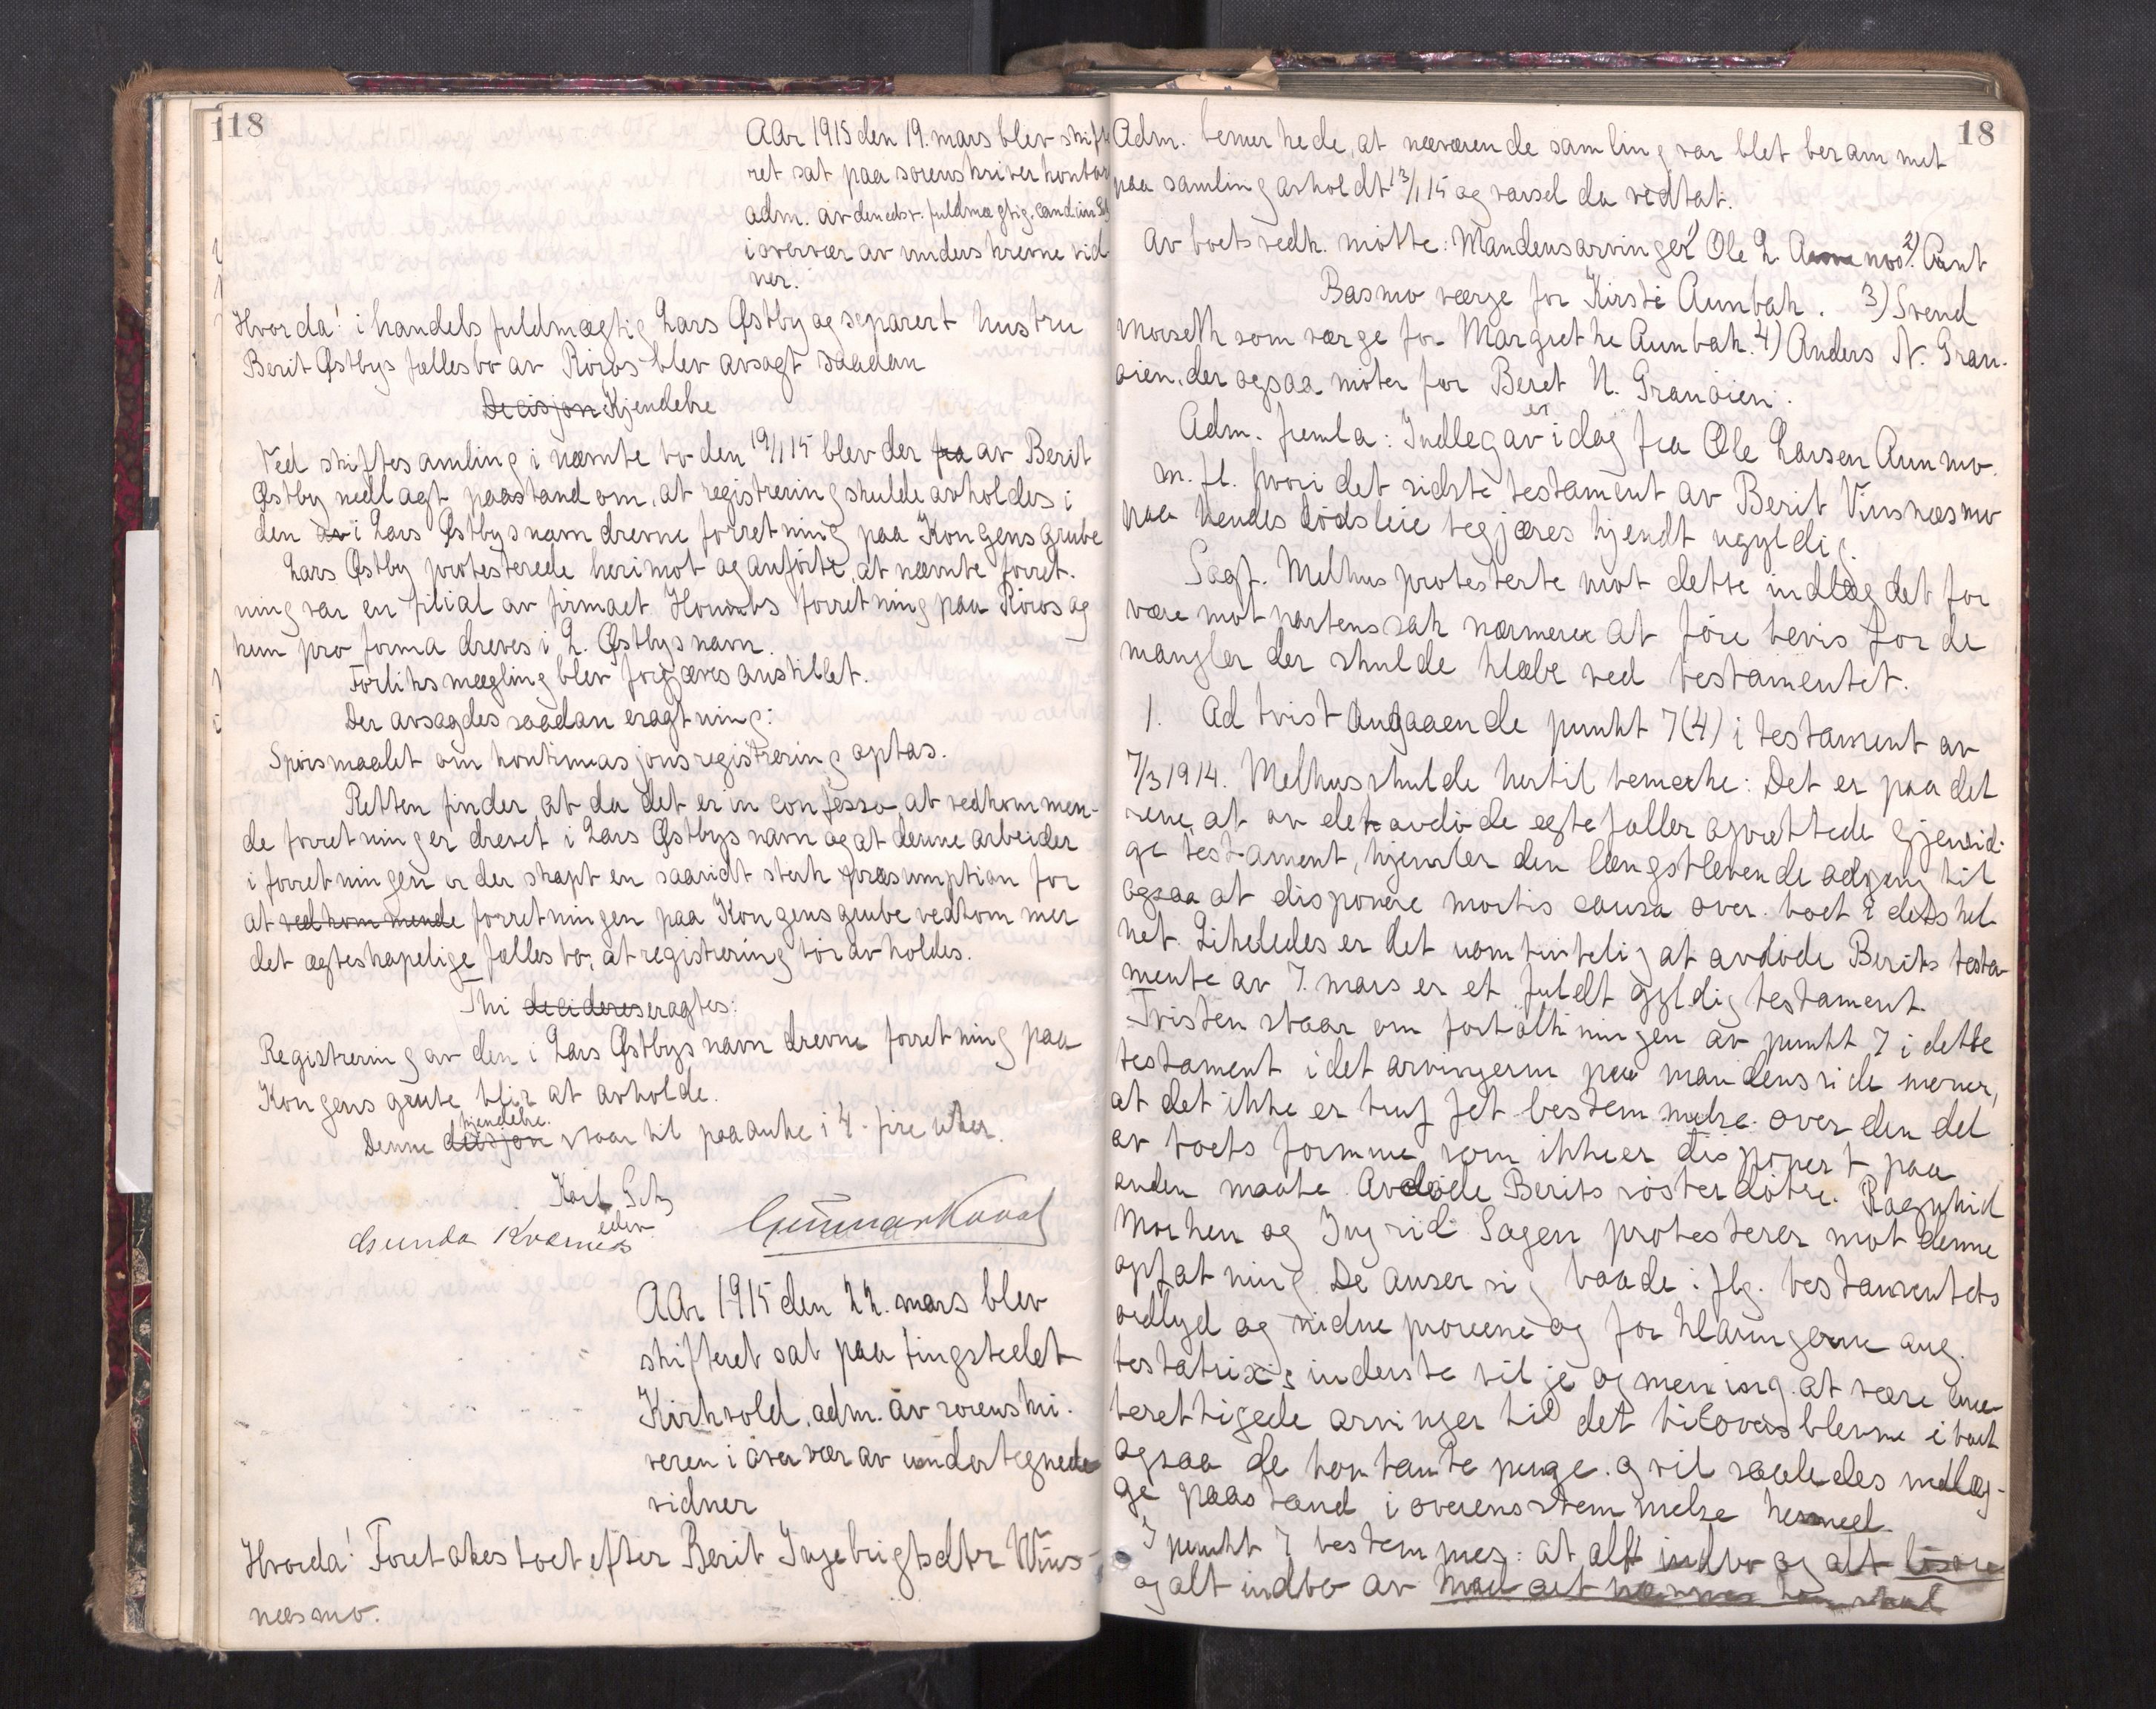 18
AAr 1915 den 19. mars blev skifte
ret sat paa sorenskriverkontor
adm. av den edsv. fuldmægtig. cand. jur.
i overvær av underskrevne vid
ner.
Hvorda! i handelsfuldmægtig Lars Østby og separert hustru
Berit Østbys fællesbo av Röros blev avsagt saadan
Decisjon Kjendelse
Ved skiftesamling i nævnte bo den 19/1 15 blev der fra av Berit
Østby nedlagt paastand om, at registrering skulde avholdes i
den av i Lars Østbys navn drevne forretning paa Kongens grube
Lars Østby protesterede herimot og anförte, at nævnte forret-
ning var en filial av firmaet forretning paa Röros og
kun pro forma dreves i L. Østbys navn.
Forliksmægling blev forgjæves anstillet.
Der avsagdes saadan eragtning:
Spörsmaalet om kontinuasjonsregistrering optas.
Retten finder at da det er in confesso at vedkommen-
de forretninger drevet i Lars Østbys navn og at denne arbeider
i forretningen er der skapt en saavidt sterk præsumption for
at vedkommende forretningen paa Kongens grube vedkommer
det ægteskapelige fællesbo, at registrering bör avholdes.
Thi decideres eragtes:
Registrering av den i Lars Østbys navn drevne forretning paa
Kongens grube blir at avholde.
Denne decisjon kjendelse staar til paaanke i 4 - fire uker.
edsv.
Gunda Kværnes
AAr 1915 den 22. mars blev
skifteret sat paa tingstedet
Kirkvold, adm. av sorenskri-
veren i overvær av undertegnede
vidner
Hvorda! Foretakes boet efter Berit Ingebrigtsdtr Vins-
næsmo.
18
Adm. bemerkede, at nærværende samling var blet berammet
paa samling avholdt 13/1 15 og varsel da vedtat.
Av boets vedk. mötte: Mandens arvinger 1) Ole L. Aunmo 2)
Basmo værge for Kirsti Aunbak. 3) Svend
Moseth som værge for Margrethe Aunbak. 4) Anders N. Gran-
öien, der ogsaa möter for Beret N. Granöien.
Adm. fremla: Indleg av idag fra Ole Larsen Aunmo
m. fl. hvori det sidste testament av Berit Vinsnesmo
paa hendes dödsleie begjæres kjendt ugyldig.
Sagf. Melhus protesterte mot dette indlæg det for
være motpartens sak nærmere at före bevis for de
mangler der skulde klæbe ved testamentet.
1. Ad tvist angaaende punkt 7 (4) i testament av
7/3 1914. Melhus skulde hertil bemerke: Det er paa det
rene at av de avdöde egtefæller oprettede gjensidi-
ge testament, hjemler den længstlevende adgang til
ogsaa at disponere mortis causa over boet i dets hel-
het. Likeledes er det uomtvistelig at avdöde Berits testa-
mente av 7. mars er et fuldt gyldig testament.
Tvisten staar om fortolkningen av punkt 7 i dette
testament idet arvingerne paa mandens side mener,
at det ikke er truffet bestemmelse over den del
av boets formue som ikke er disponert paa
anden maate. Avdöde Berits sösterdötre. Ragnhild
Morken og Ingrid Sagen protesterer mot denne
opfatning. De anser sig baade iflg. testamentets
ordlyd og vidneprovene og forklaringerne ang.
testatrix's inderste vilje og mening at være ene-
berettigede arvinger til det tiloversblevne i boet
ogsaa de kontante penge. og vil saaledes nedlæg-
ge paastand i overensstemmelse hermed.
I punkt 7 bestemmes: at alt indbo og alt lösöre
og alt indbo av